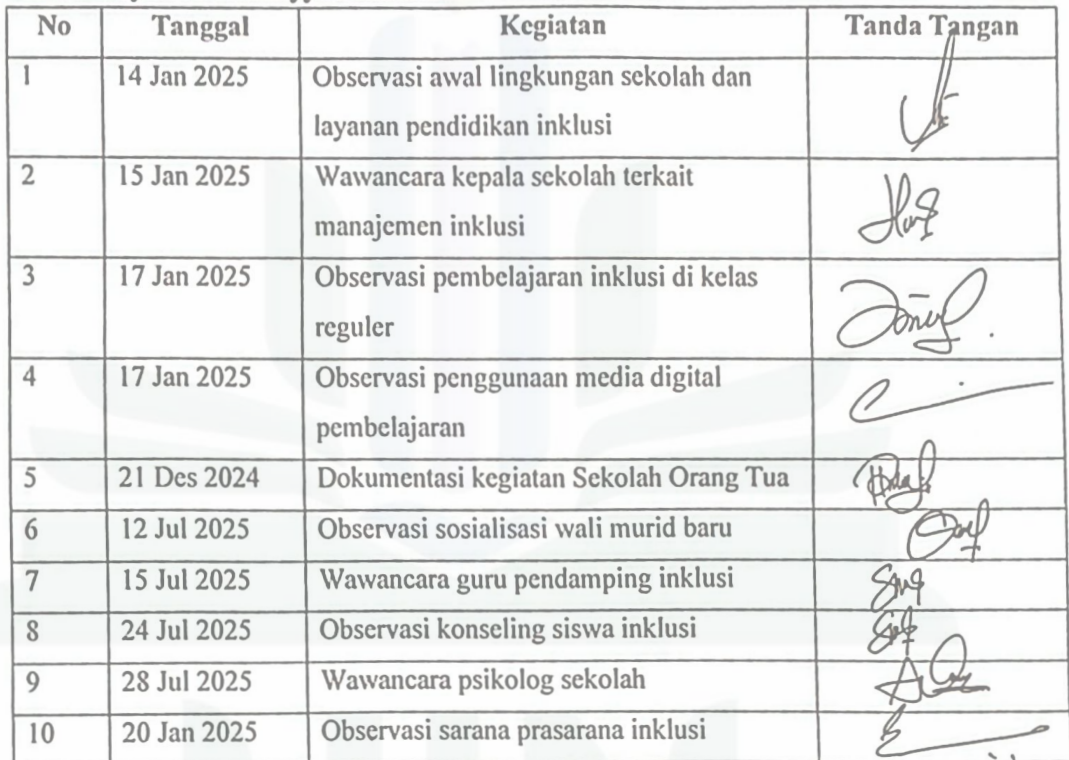 No Tanggal Kegiatan Tanda Tangan
1 14 Jan 2025 Observasi awal lingkungan sekolah dan
layanan pendidikan inklusi
2 15 Jan 2025 Wawancara kepala sekolah terkait
manajemen inklusi
3 17 Jan 2025 Observasi pembelajaran inklusi di kelas
reguler
4 17 Jan 2025 Observasi penggunaan media digital
pembelajaran
5 21 Des 2024 Dokumentasi kegiatan Sekolah Orang Tua
6 12 Jul 2025 Observasi sosialisasi wali murid baru
7 15 Jul 2025 Wawancara guru pendamping inklusi
8 24 Jul 2025 Observasi konseling siswa inklusi
9 28 Jul 2025 Wawancara psikolog sekolah
10 20 Jan 2025 Observasi sarana prasarana inklusi